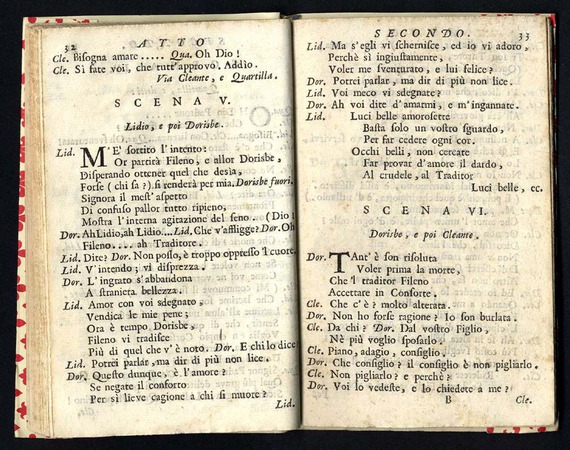 32
ATTO
Cle. Bisogna amare ..... Qua. Oh Dio!
Cle. Sì fate voi, che tutt'approvo. Addio.
Via Cleante, e Quartilla.
SCENA V.
Lidio, e poi Dorisbe.
Lid. M'E' sortito l'intento:
Or partirà Fileno, e allor Dorisbe,
Disperando ottener quel che desia,
Forse (chi sa?) si renderà per mia. Dorisbe fuori.
Signora il mest'aspetto
Di confuso pallor tutto ripieno,
Mostra l'interna agitazione del seno. (Dio!
Dor. Ah Lidio, ah Lidio....Lid. Che v'affligge? Dor. Oh
Fileno.... ah Traditore.
Lid. Dite? Dor. Non posso, è troppo oppresso 'l cuore.
Lid. V'intendo; vi disprezza.
Dor. L'ingrato s'abbandona
A straniera bellezza.
Lid. Amor con voi sdegnato,
Vendica le mie pene;
Ora è tempo Dorisbe,
Fileno vi tradisce
Più di quel che v'è noto. Dor. E chi lo dice
Lid. Potrei parlar, ma dir di più non lice.
Dor. Questo dunque, è l'amore?
Se negate il conforto
Per sì lieve cagione a chi si muore?
Lid.
SECONDO.
33
Lid. Ma s'egli vi schernisce, ed io vi adoro,
Perchè sì ingiustamente,
Voler me sventurato, e lui felice?
Dor. Potrei parlar, ma dir di più non lice.
Lid. Voi meco vi sdegnate?
Dor. Ah voi dite d'amarmi, e m'ingannate.
Lid. Luci belle amorosette
Basta solo un vostro sguardo,
Per far cedere ogni cor.
Occhi belli, non cercate
Far provar d'amore il dardo,
Al crudele, al Traditor
Luci belle, ec.
SCENA VI.
Dorisbe, e poi Cleante.
Dor. TAnt'è son risoluta
Voler prima la morte,
Che 'l traditor Fileno
Accettare in Consorte.
Cle. Che c'è? molto alterata.
Dor. Non ho forse ragione? Io son burlata.
Cle. Da chi? Dor. Dal vostro Figlio,
Nè più voglio sposarlo.
Cle. Piano, adagio, consiglio.
Dor. Che consiglio? il consiglio è non pigliarlo.
Cle. Non pigliarlo? e perchè?
Dor. Voi lo vedeste, e lo chiedete a me?
B
Cle.